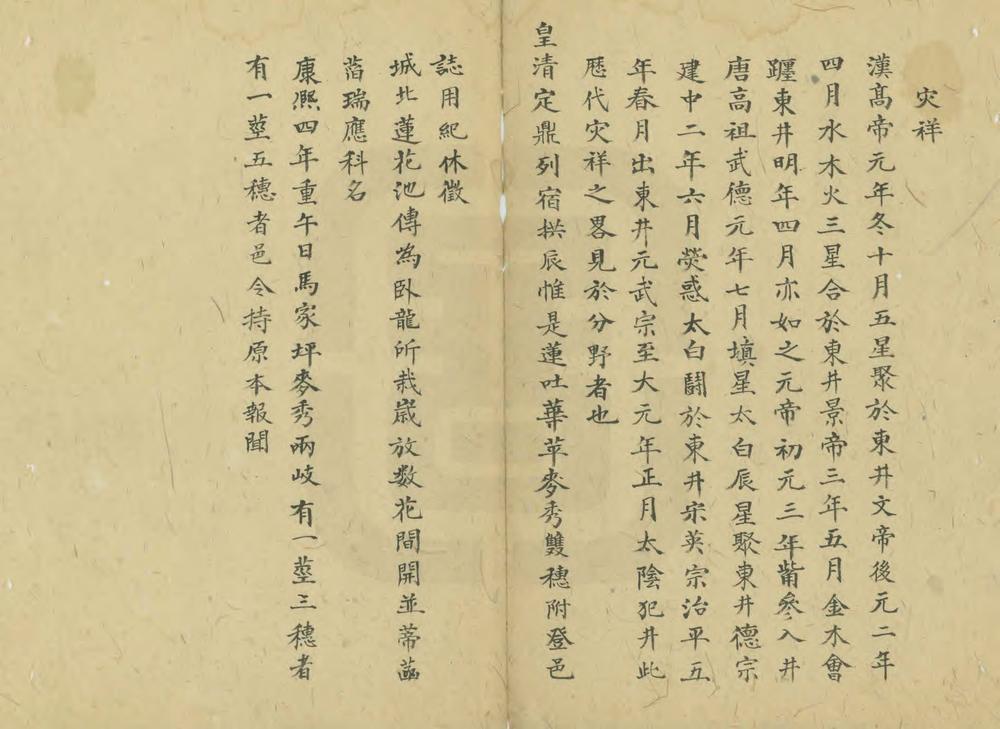 灾祥
漢高帝元年冬十月五星聚於東井文帝後元二年
四月水木火三星合於東井景帝三年五月金木會
躔東井明年四月亦如之元帝初元三年觜參入井
唐高祖武德元年七月塡星太白辰星聚東井德宗
建中二年六月熒惑太白鬪於東井宋英宗治平五
年春月出東井元武宗至大元年正月太陰犯井此
歷代灾祥之畧見於分野者也
皇清定鼎列宿拱辰惟是蓮吐華苹麥秀雙穗附登邑
誌用紀休徵
城北蓮花池傳為臥龍所栽歲放数花間開並蒂菡
萏瑞應科名
康熙四年重午日馬家坪麥秀兩岐有一莖三穗者
有一莖五穗者邑令持原本報聞